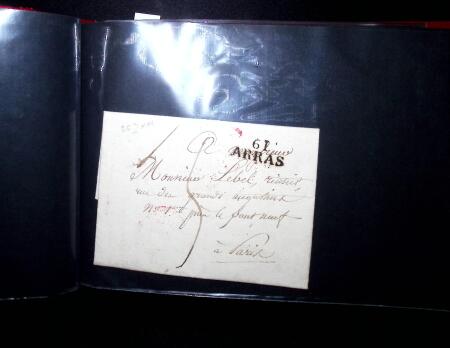 61
ARRAS
A Monsieur
Monsieur Lebel,
rue des grands augustins
près le pont neuf
à Paris